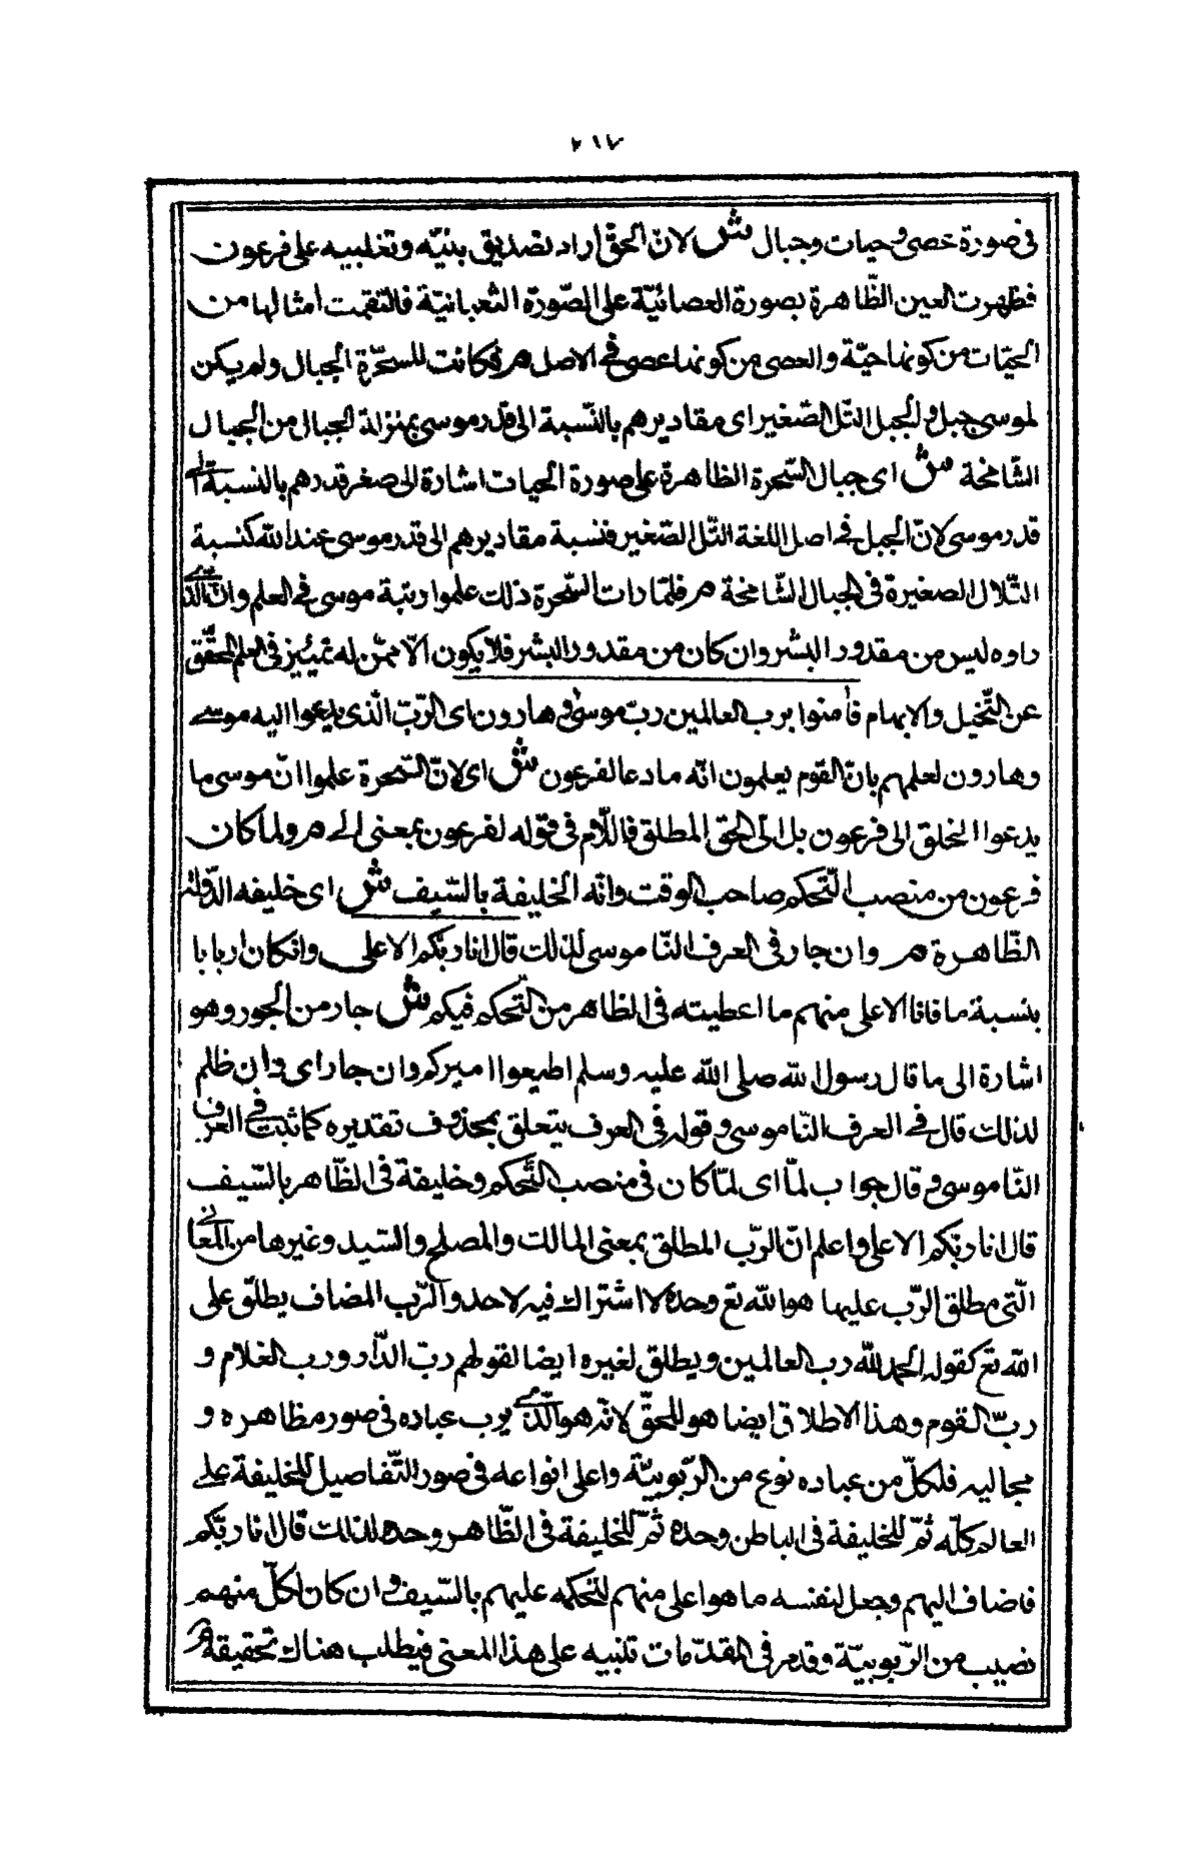 ٢١٧
فى صورة عصى وحيات وجبال ش لان الحق اراد تصديق بنيّه وتغلبيه على فرعون
فظهرت العين الظّاهرة بصورة العصائيّة على الصّورة الثعبانيّة فالتقمت امثالها من
الحيّات من كونها حيّة والعصى من كونها عصى فى الاصل م فكانت للسحّرة الجبال ولم يكن
لموسى جبل والجبل التل الصّغير اى مقاديرهم بالنّسبة الى قدر موسى بمنزلة الجبال من الجبال
الشّامخة ش اى جبال السّحرة الظاهرة على صورة الحيات اشارة الى صغر قدرهم بالنسبة الى
قدر موسى لانّ الجبل فى اصل اللغة التّل الصّغير فنسبة مقاديرهم الى قدر موسى عند الله كنسبة
التّلال الصغيرة فى الجبال الشّامخة م فلمّا رات السّحرة ذلك علموا رتبة موسى فى العلم وانّ الّذى
راوه ليس من مقدور البشر وان كان من مقدور البشر فلا يكون الّا ممّن له تمييز فى العلم المحقّق
عن التّخيل والابهام فآمنوا برب العالمين ربّ موسى وهارون اى الرّبّ الّذى يدعوا اليه موسى
وهارون لعلمهم بانّ القوم يعلمون انّه ما دعا لفرعون ش اى لانّ السّحرة علموا انّ موسى ما
يدعوا الخلق الى فرعون بل الى الحق المطلق فاللّام فى قوله لفرعون بمعنى الى م ولما كان
فرعون من منصب التّحكم صاحب الوقت وانّه الخليفة بالسّيف ش اى خليفه الدّولة
الظّاهرة م وان جار فى العرف النّاموسى لذلك قال انا ربّكم الاعلى وانكان اربابا
بنسبة ما فانا الاعلى منهم ما اعطيته فى الظاهر من التّحكم فيكم ش جار من الجور وهو
اشارة الى ما قال رسول لله صلى الله عليه وسلم اطيعوا اميركم وان جار اى وان ظلم
لذلك قال فى العرف النّاموسى وقوله فى العرف يتعلق بمحذوف تقديره كما ثبت فى العرف
النّاموسى وقال جواب لمّا اى لمّا كان فى منصب التّحكم وخليفة فى الظّاهر بالسّيف
قال انا ربّكم الاعلى واعلم انّ الرّب المطلق بمعنى المالك والمصلح والسّيد وغيرها من المعانى
الّتى مطلق الرّب عليها هو الله تع وحدة لا اشتراك فيه لاحد والرّب المضاف يطلّق على
الله تع كقوله الحمد لله رب العالمين ويطلق لغيره ايضا لقولهم ربّ الدّار ورب الغلام و
ربّ القوم وهذا الاطلاق ايضا هو للحقّ لانّه هو الّذى يرب عباده فى صور مظاهره و
مجاليه فلكلّ من عباده نوع من الرّبوبيّة واعلى انواعه فى صور التّفاصيل للخليفة على
العالم كلّه ثمّ للخليفة فى الباطن وحده ثمّ للخليفة فى الظّاهر وحده لذلك قال انا ربّكم
فاضاف اليهم وجعل لنفسه ما هو اعلى منهم لتحكمه عليهم بالسّيف وان كان لكلّ منهم
نصيب من الرّبوبيّة وقد مر فى المقدّمات تنبيه على هذا المعنى فيطلب هناك تحقيقة م